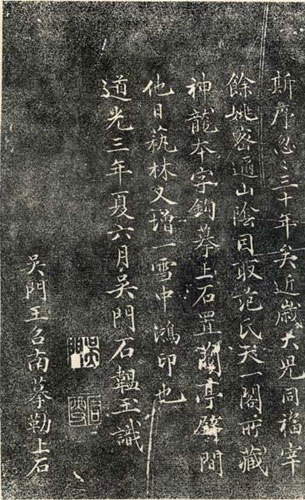 斯席忽〻三十年矣近歲大兒同福宰
餘姚密邇山陰因取范氏天一閣所藏
神龍本字鉤摹上石置蘭亭壁間
他日蓺林又增一雪中鴻印也
道光三年夏六月吳門石韞玉識
吳門王召南摹勒上石